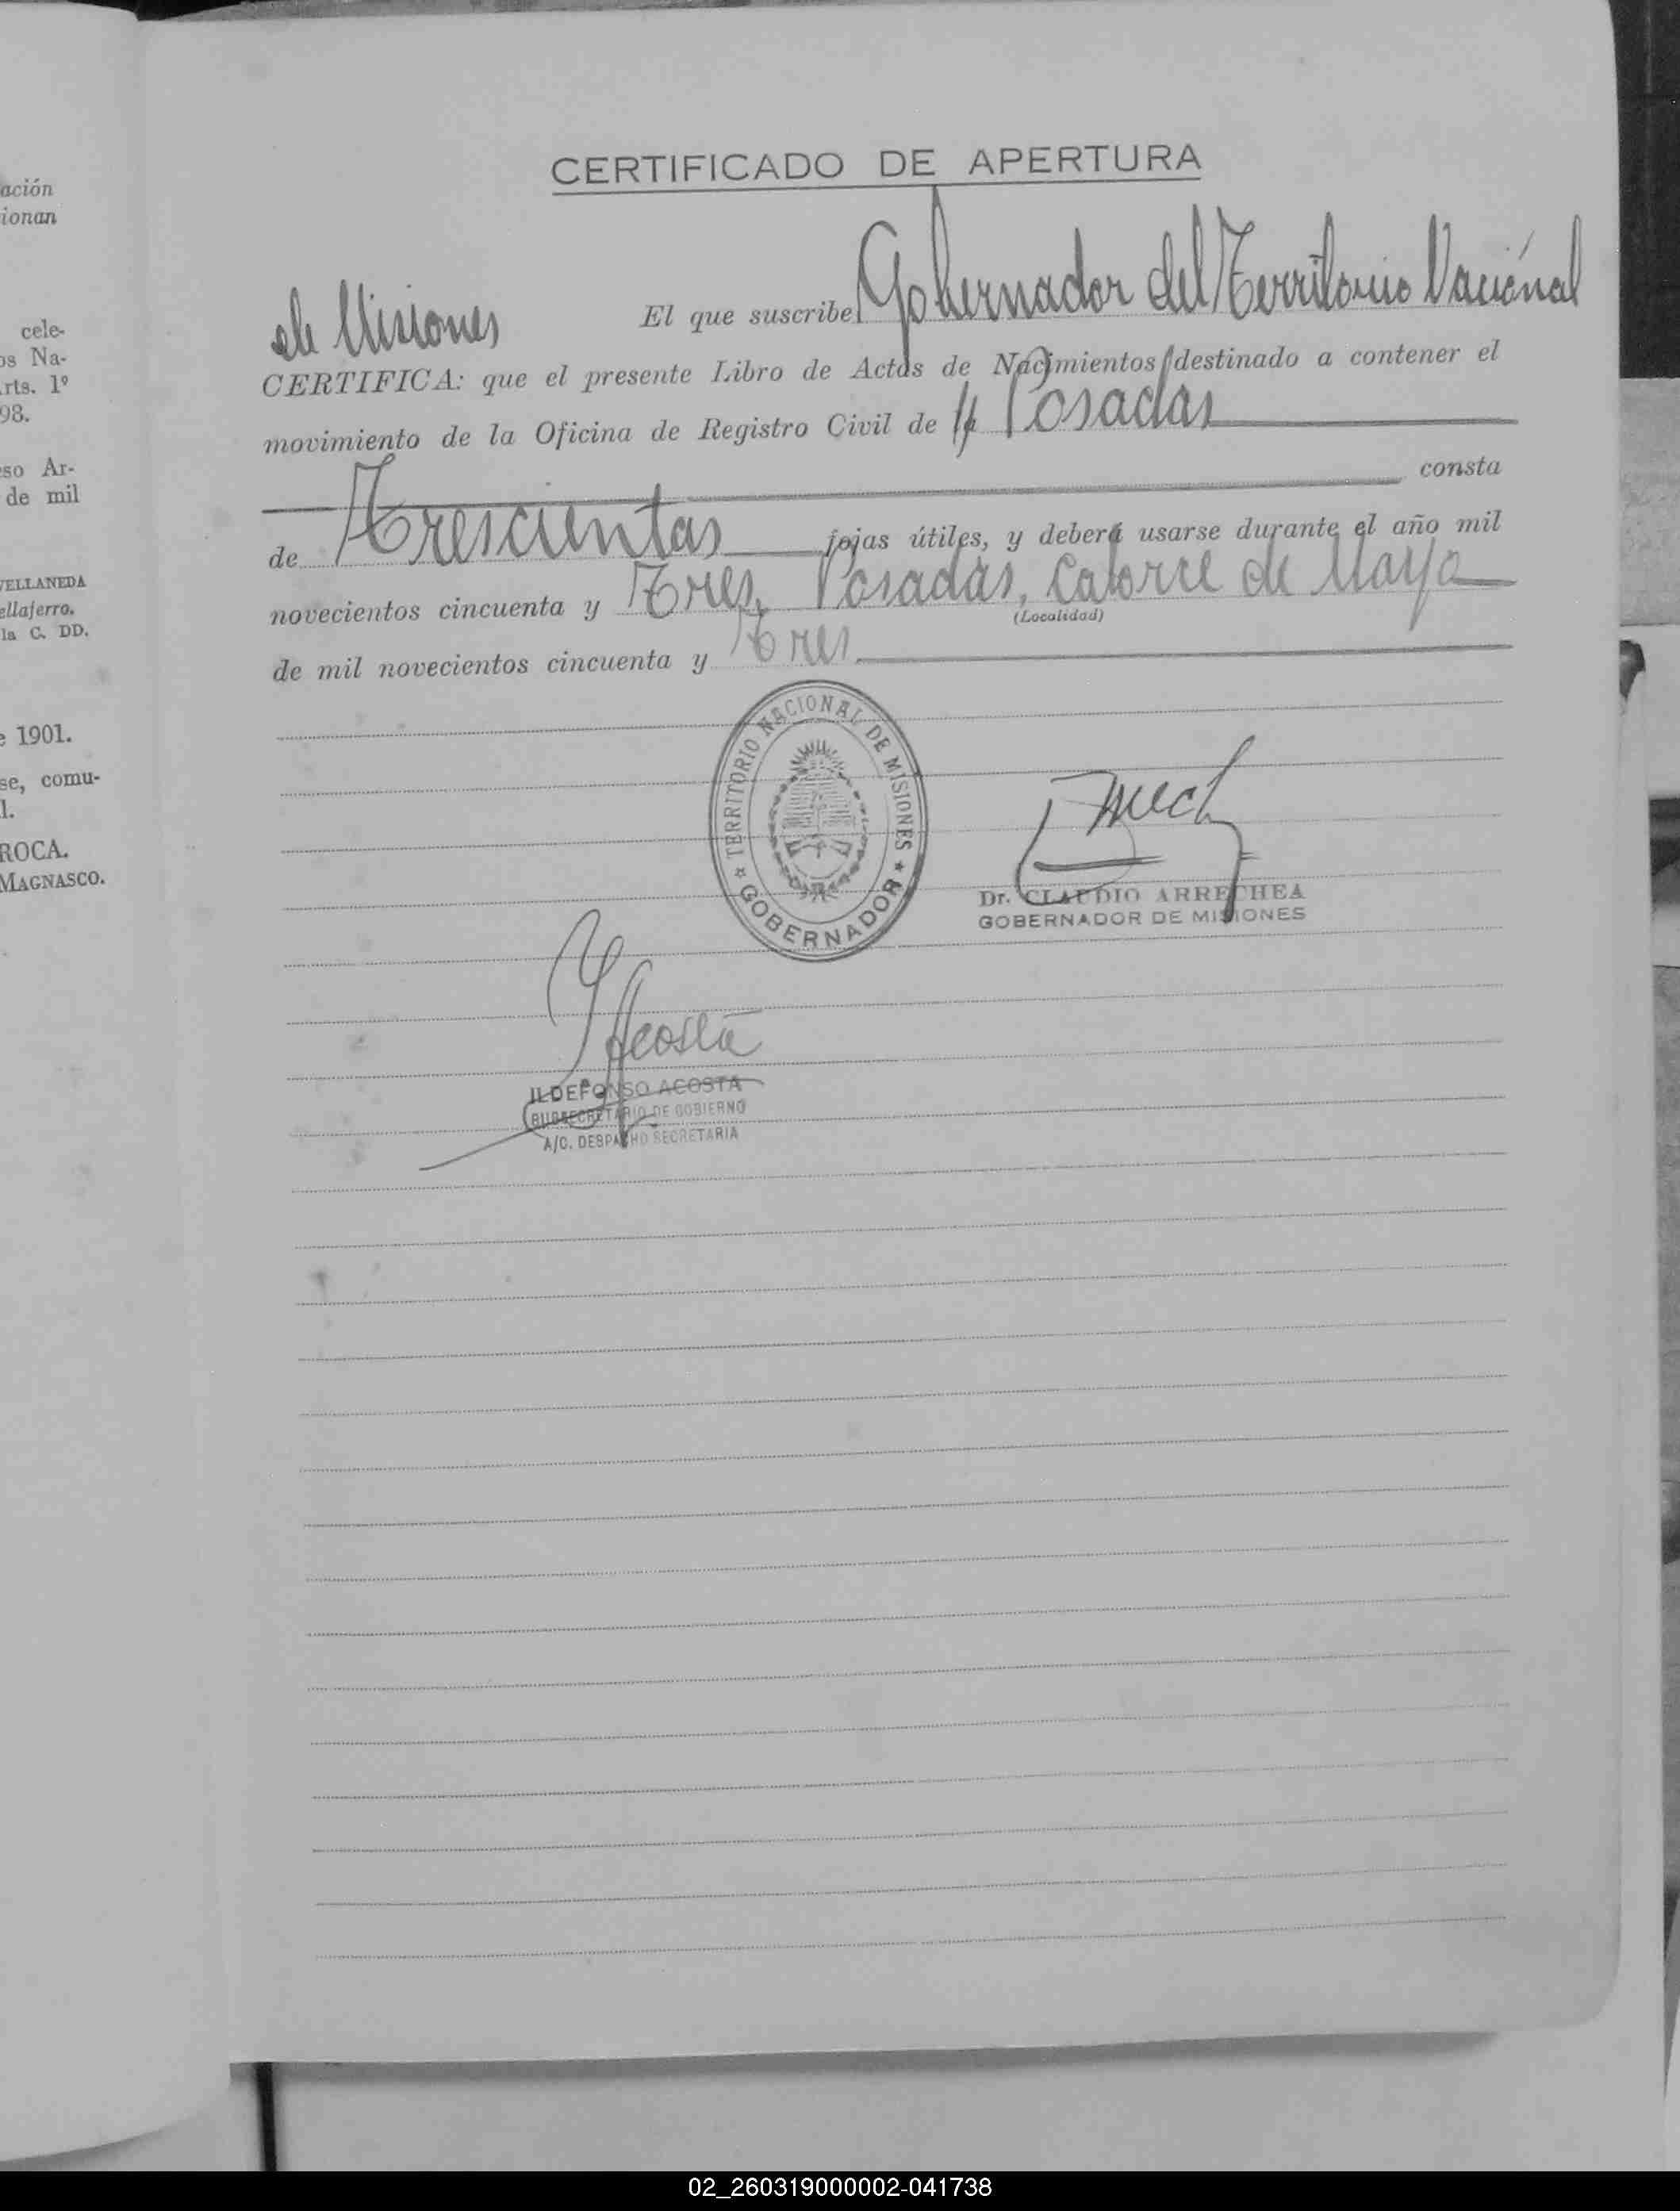 CERTIFICADO DE APERTURA
El que suscribe Gobernador del Territorio Nacional
de Misiones
CERTIFICA: que el presente Libro de Actas de Nacimientos destinado a contener el
movimiento de la Oficina de Registro Civil de Posadas
consta
de Trescientas fojas útiles, y deberá usarse durante el año mil
novecientos cincuenta y Tres, Posadas, Catorce de Mayo
(Localidad)
de mil novecientos cincuenta y Tres
★ TERRITORIO NACIONAL DE MISIONES ★
GOBERNADOR
Dr. CLAUDIO ARRECHEA
GOBERNADOR DE MISIONES
Acosta
ILDEFONSO ACOSTA
SUBSECRETARIO DE GOBIERNO
A/C. DESPACHO SECRETARIA
ación
ionan
cele-
os Na-
rts. 1º
98.
so Ar-
de mil
VELLANEDA
ellaferro.
la C. DD.
e 1901.
se, comu-
l.
ROCA.
MAGNASCO.
02_260319000002-041738